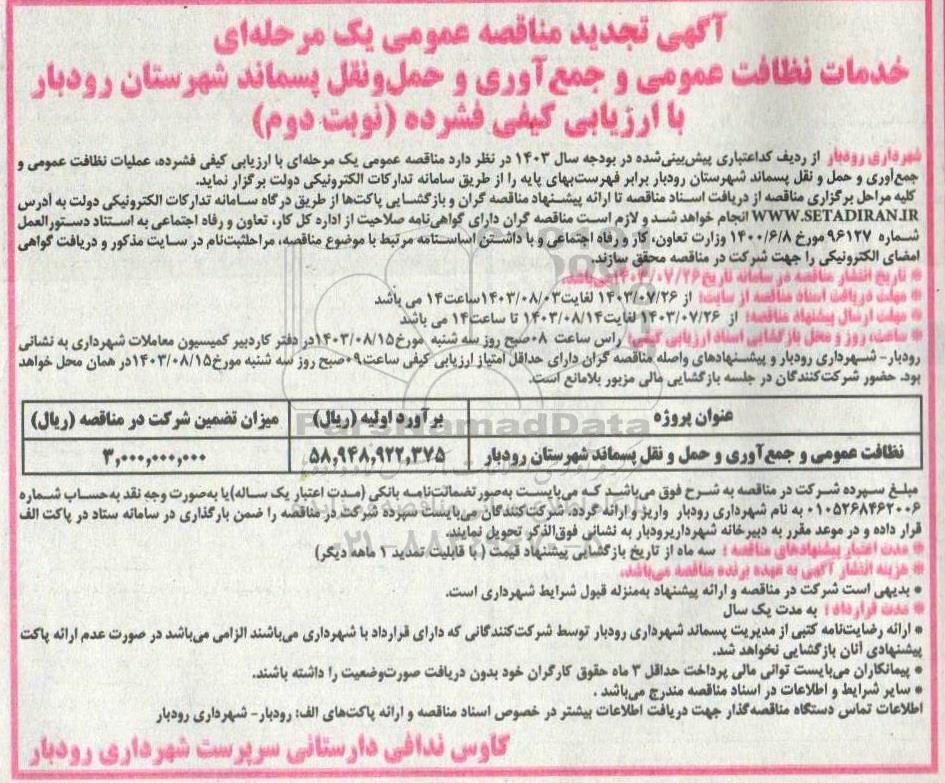 آگهی تجدید مناقصه عمومی یک مرحله‌ای
خدمات نظافت عمومی و جمع‌آوری و حمل‌ونقل پسماند شهرستان رودبار
با ارزیابی کیفی فشرده (نوبت دوم)
شهرداری رودبار از ردیف کداعتباری پیش‌بینی‌شده در بودجه سال ۱۴۰۳ در نظر دارد مناقصه عمومی یک مرحله‌ای با ارزیابی کیفی فشرده، عملیات نظافت عمومی و
جمع‌آوری و حمل و نقل پسماند شهرستان رودبار برابر فهرست‌بهای پایه را از طریق سامانه تدارکات الکترونیکی دولت برگزار نماید.
کلیه مراحل برگزاری مناقصه از دریافت اسناد مناقصه تا ارائه پیشنهاد مناقصه گران و بازگشایی پاکت‌ها از طریق درگاه سامانه تدارکات الکترونیکی دولت به آدرس
WWW.SETADIRAN.IR انجام خواهد شد و لازم است مناقصه گران دارای گواهی‌نامه صلاحیت از اداره کل کار، تعاون و رفاه اجتماعی به استناد دستورالعمل
شماره ۹۶۱۲۷ مورخ ۱۴۰۰/۶/۸ وزارت تعاون، کار و رفاه اجتماعی و با داشتن اساسنامه مرتبط با موضوع مناقصه، مراحل‌ثبت‌نام در سایت مذکور و دریافت گواهی
امضای الکترونیکی را جهت شرکت در مناقصه محقق سازند.
* تاریخ انتشار مناقصه در سامانه تاریخ ۱۴۰۳/۰۷/۲۶ می‌باشد.
* مهلت دریافت اسناد مناقصه از سایت: از ۱۴۰۳/۰۷/۲۶ لغایت ۱۴۰۳/۰۸/۰۳ ساعت ۱۴ می باشد
* مهلت ارسال پیشنهاد مناقصه: از ۱۴۰۳/۰۷/۲۶ لغایت ۱۴۰۳/۰۸/۱۴ تا ساعت ۱۴ می باشد
* ساعت، روز و محل بازگشایی اسناد ارزیابی کیفی: راس ساعت ۰۸ صبح روز سه شنبه مورخ ۱۴۰۳/۰۸/۱۵ در دفتر کاردبیر کمیسیون معاملات شهرداری به نشانی
رودبار- شهرداری رودبار و پیشنهادهای واصله مناقصه گران دارای حداقل امتیاز ارزیابی کیفی ساعت ۰۹ صبح روز سه شنبه مورخ ۱۴۰۳/۰۸/۱۵ در همان محل خواهد
بود. حضور شرکت‌کنندگان در جلسه بازگشایی مالی مزبور بلامانع است.
عنوان پروژه برآورد اولیه (ریال) میزان تضمین شرکت در مناقصه (ریال)
نظافت عمومی و جمع‌آوری و حمل و نقل پسماند شهرستان رودبار ۵۸,۹۴۸,۹۲۲,۳۷۵ ۳,۰۰۰,۰۰۰,۰۰۰
مبلغ سپرده شرکت در مناقصه به شرح فوق می‌باشد که می‌بایست به‌صورت ضمانت‌نامه بانکی (مدت اعتبار یک ساله) یا به‌صورت وجه نقد به‌حساب شماره
۰۱۰۵۲۶۸۴۶۲۰۰۶ به نام شهرداری رودبار واریز و ارائه گردد، شرکت‌کنندگان می‌بایست سپرده شرکت در مناقصه را ضمن بارگذاری در سامانه ستاد در پاکت الف
قرار داده و در موعد مقرر به دبیرخانه شهرداری‌رودبار به نشانی فوق‌الذکر تحویل نمایند.
* مدت اعتبار پیشنهادهای مناقصه : سه ماه از تاریخ بازگشایی پیشنهاد قیمت ( با قابلیت تمدید ۱ ماهه دیگر)
* هزینه انتشار آگهی به عهده برنده مناقصه می‌باشد.
* بدیهی است شرکت در مناقصه و ارائه پیشنهاد به‌منزله قبول شرایط شهرداری است.
* مدت قرارداد : به مدت یک سال
* ارائه رضایت‌نامه کتبی از مدیریت پسماند شهرداری رودبار توسط شرکت‌کنندگانی که دارای قرارداد با شهرداری می‌باشند الزامی می‌باشد در صورت عدم ارائه پاکت
پیشنهادی آنان بازگشایی نخواهد شد.
* پیمانکاران می‌بایست توانی مالی پرداخت حداقل ۳ ماه حقوق کارگران خود بدون دریافت صورت‌وضعیت را داشته باشند.
* سایر شرایط و اطلاعات در اسناد مناقصه مندرج می‌باشد .
اطلاعات تماس دستگاه مناقصه‌گذار جهت دریافت اطلاعات بیشتر در خصوص اسناد مناقصه و ارائه پاکت‌های الف: رودبار- شهرداری رودبار
کاوس ندافی دارستانی سرپرست شهرداری رودبار
ParsNamadData